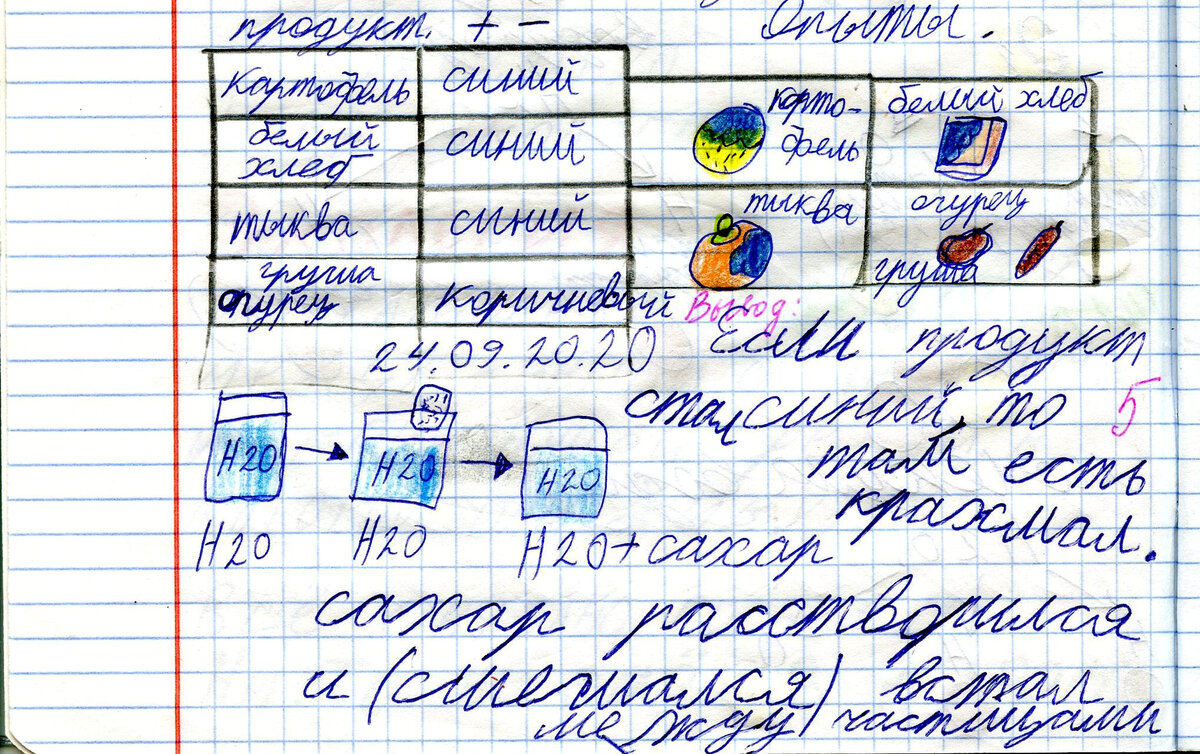 продукт. + - Опыты.
картофель синий
белый хлеб синий
тыква синий
груша
огурец коричневый
карто-
фель
белый хлеб
тыква
огурец
груша
Вывод:
Если продукт
стал синий, то 5
там есть
крахмал.
24.09.20.20
H2O H2O H2O
H2O H2O H2O+сахар
сахар расстворился
и (смешался) встал
между частицами